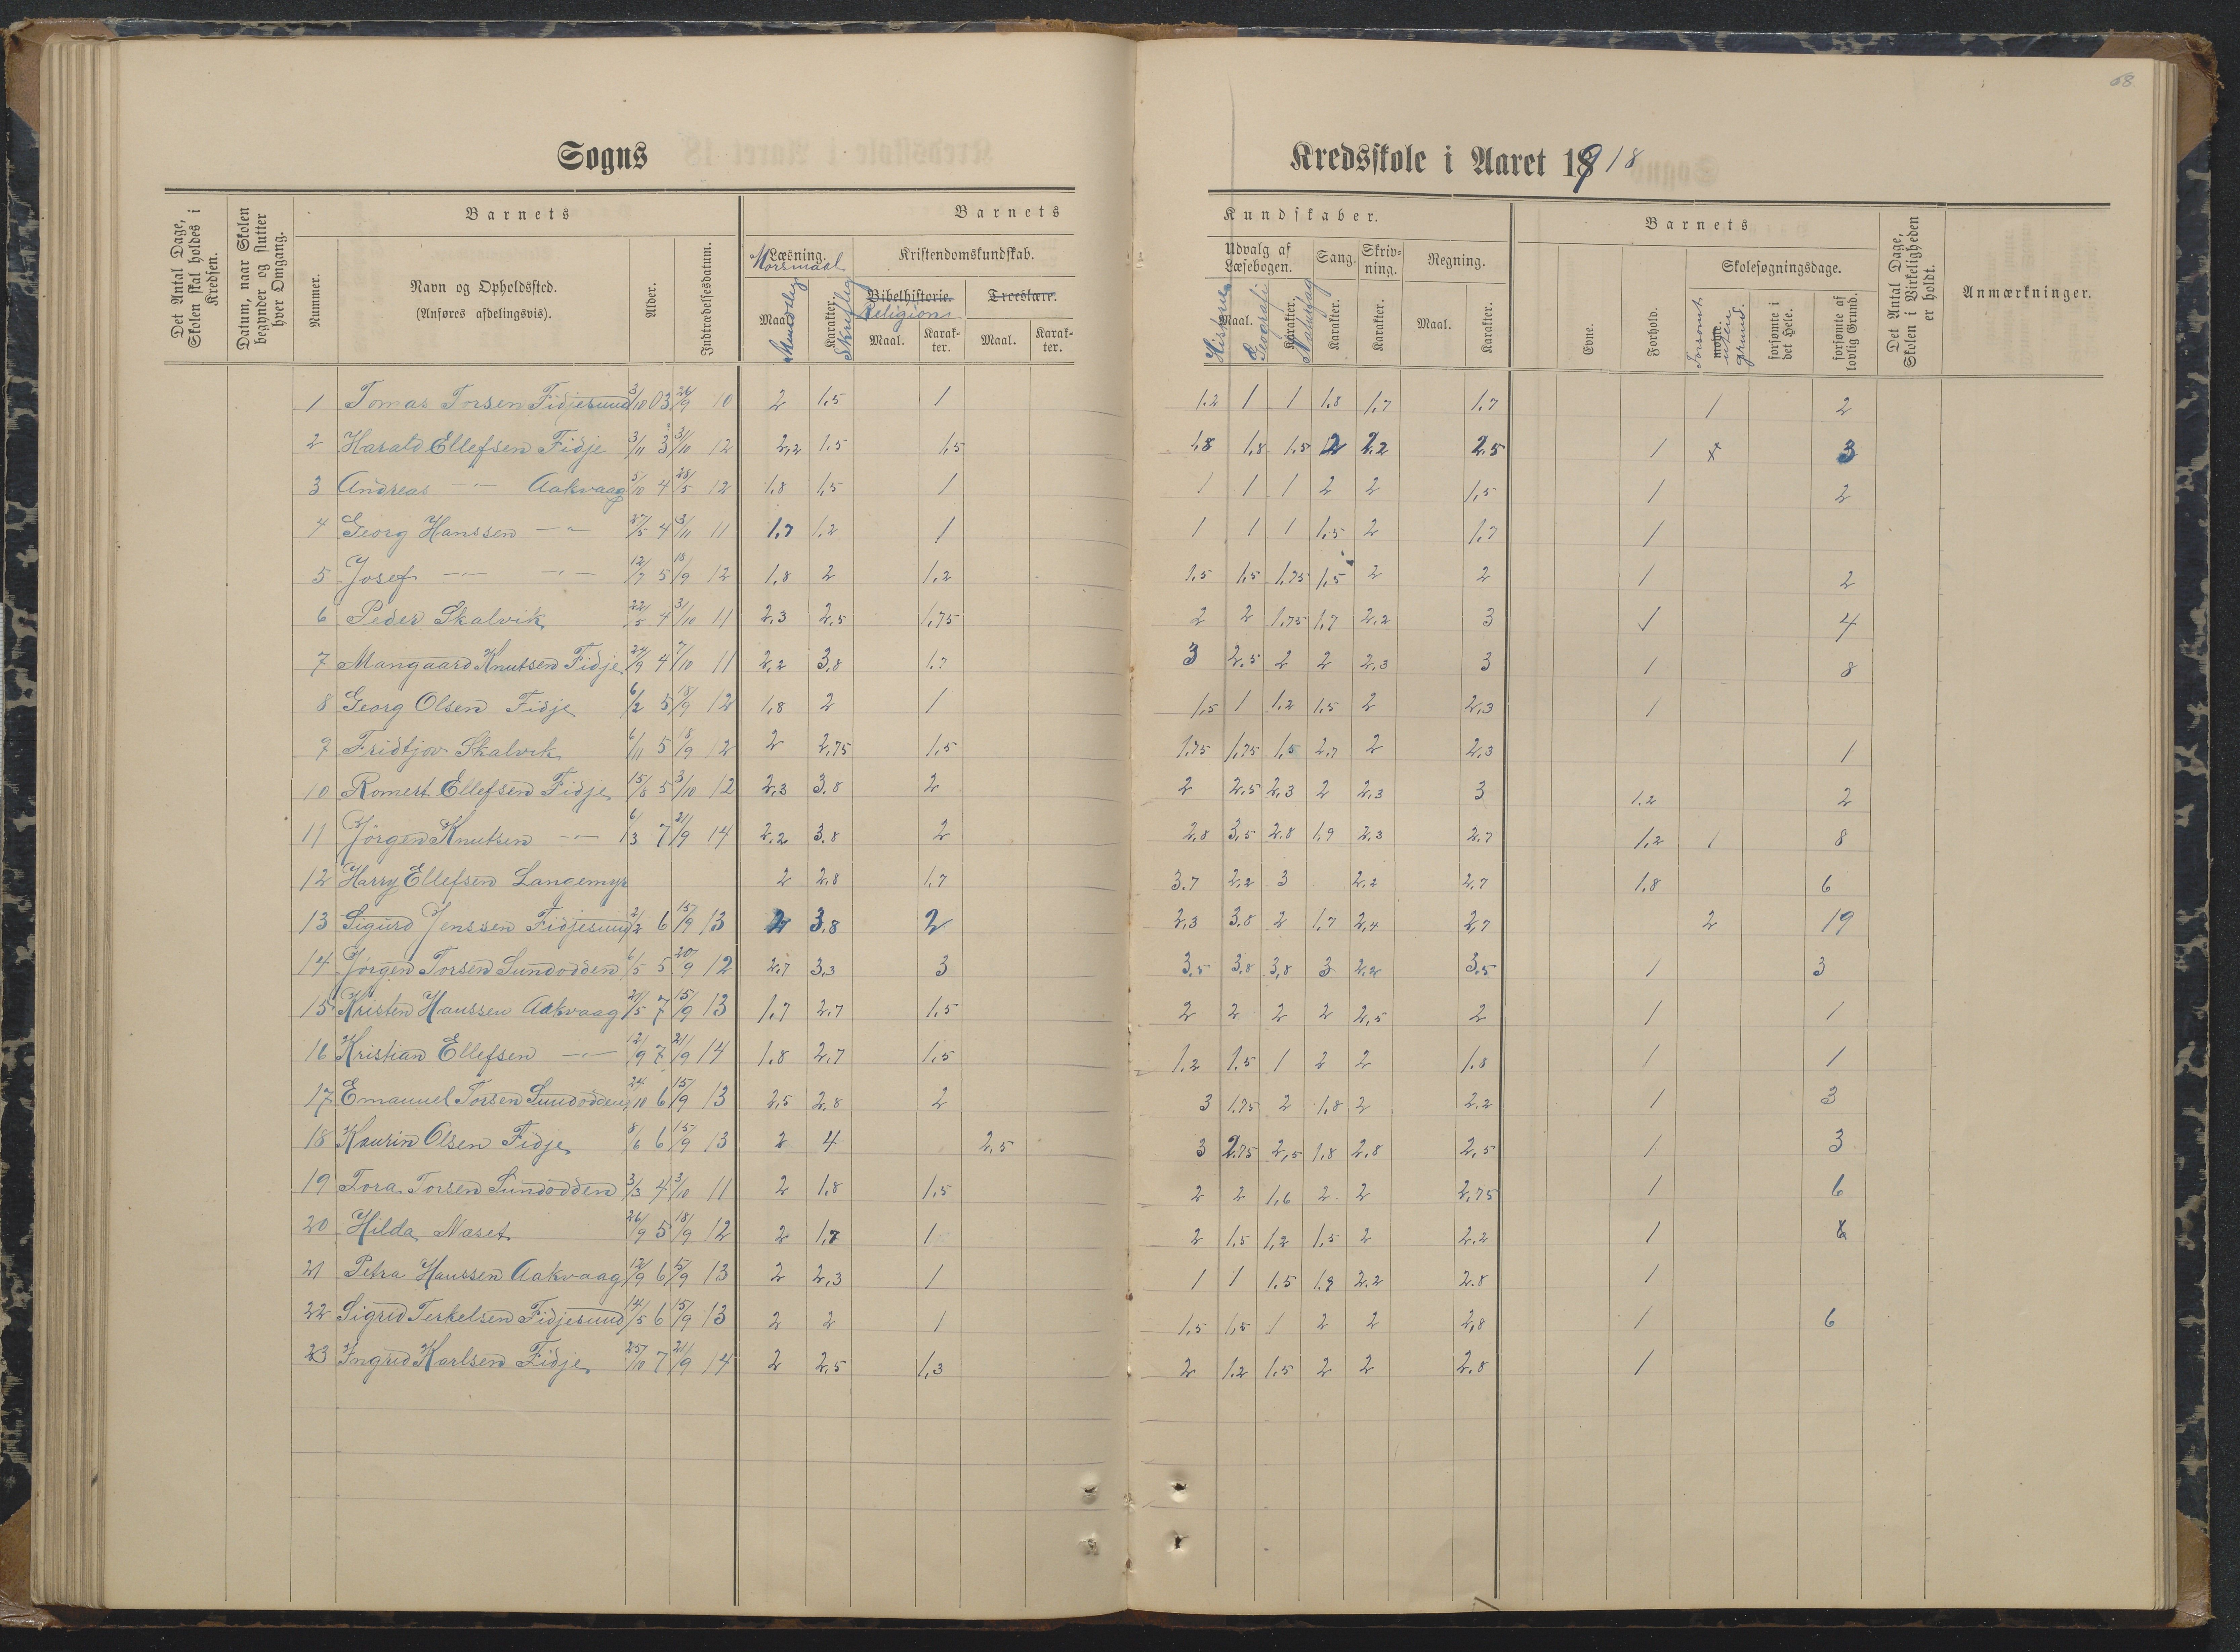 68
Sogns
Kredsskole i Aaret 1918
Det Antal Dage, Skolen skal holdes i Kredsen.
Datum, naar Skolen begynder og slutter hver Omgang.
Barnets
Nummer.
Navn og Opholdssted.
(Anføres afdelingsvis).
Alder.
Indtrædelsesdatum.
Barnets
Kundskaber.
Læsning.
Morsmaal
Maal.
Mundtlig
Karakter.
Skriftlig
Kristendomskundskab.
Bibelhistorie.
Religion
Troeslære.
Maal.
Karakter.
Maal.
Karakter.
Udvalg af Læsebogen.
Maal.
Historie
Geografi
Karakter.
Naturfag
Sang.
Karakter.
Skrivning.
Karakter.
Regning.
Maal.
Karakter.
Barnets
Evne.
Forhold.
Skolesøgningsdage.
Forsømt uten grund.
forsømte i det Hele.
forsømte af lovlig Grund.
Det Antal Dage, Skolen i Virkeligheden er holdt.
Anmærkninger.
1 Tomas Torsen Fidjesund 3/10 03 26/9 10 2 1,5 1 1.2 1 1 1.8 1,7 1,7 1 2
2 Harald Ellefsen Fidje 3/11 3 31/10 12 2,2 1,5 1,5 1,8 1,8 1,5 2 2,2 2,5 1 x 3
3 Andreas -"- Aakvaag 5/10 4 28/5 12 1,8 1,5 1 1 1 1 2 2 1,5 1 2
4 Georg Hanssen -"- 27/5 4 3/11 11 1,7 1,2 1 1 1 1 1,5 2 1,7 1
5 Josef -"- -"- 12/7 5 18/9 12 1,8 2 1,2 1,5 1,5 1,75 1,5 2 2 1 2
6 Peder Skalvik 22/5 4 31/10 11 2,3 2,5 1,75 2 2 1,75 1,7 2,2 3 1 4
7 Mangaard Knutsen Fidje 24/9 4 7/10 11 2,2 3,8 1,7 3 2,5 2 2 2,3 3 1 8
8 Georg Olsen Fidje 6/2 5 18/9 12 1,8 2 1 1,5 1 1.2 1,5 2 2,3 1
9 Fridtjov Skalvik 6/11 5 18/9 12 2 2,75 1,5 1,75 1,75 1,5 2,7 2 2,3 1
10 Romert Ellefsen Fidje 15/8 5 3/10 12 2,3 3.8 2 2 2,5 2,3 2 2,3 3 1.2 2
11 Jörgen Knutsen -"- 6/3 7 21/9 14 2,2 3.8 2 2,8 3,5 2.8 1,9 2,3 2,7 1,2 1 8
12 Harry Ellefsen Langemyr 2 2,8 1,7 3.7 2,2 3 2,2 2,7 1,8 6
13 Sigurd Jenssen Fidjesund 2/2 6 15/9 13 2 3,8 2 2,3 3,8 2 1,7 2,4 2,7 2 19
14 Jörgen Torsen Sundodden 6/5 5 20/9 12 2,7 3,3 3 3,5 3,8 3,8 3 2,2 3,5 1 3
15 Kristen Hanssen Aakvaag 21/5 7 15/9 13 1,7 2,7 1,5 2 2 2 2 2,5 2 1 1
16 Kristian Ellefsen -"- 12/9 7 21/9 14 1,8 2,7 1,5 1,2 1,5 1 2 2 1,8 1 1
17 Emanuel Torsen Sundodden 24/10 6 15/9 13 2,5 2,8 2 3 1,75 2 1,8 2 2,2 1 3
18 Kaurin Olsen Fidje 8/6 6 15/9 13 2 4 2,5 3 2,75 2,5 1,8 2,8 2,5 1 3
19 Tora Torsen Sundodden 3/3 4 3/10 11 2 1,8 1,5 2 2 1,6 2 2 2,75 1 6
20 Hilda Naset 26/9 5 18/9 12 2 1,7 1 2 1,5 1,2 1,5 2 2,2 1
21 Petra Hanssen Aakvaag 12/9 6 15/9 13 2 2,3 1 1 1 1.5 1,9 2,2 2.8 1
22 Sigrid Terkelsen Fidjesund 14/5 6 15/9 13 2 2 1 1,5 1,5 1 2 2 2,8 1 6
23 Ingrid Karlsen Fidje 25/10 7 21/9 14 2 2,5 1,3 2 1.2 1,5 2 2 2,8 1